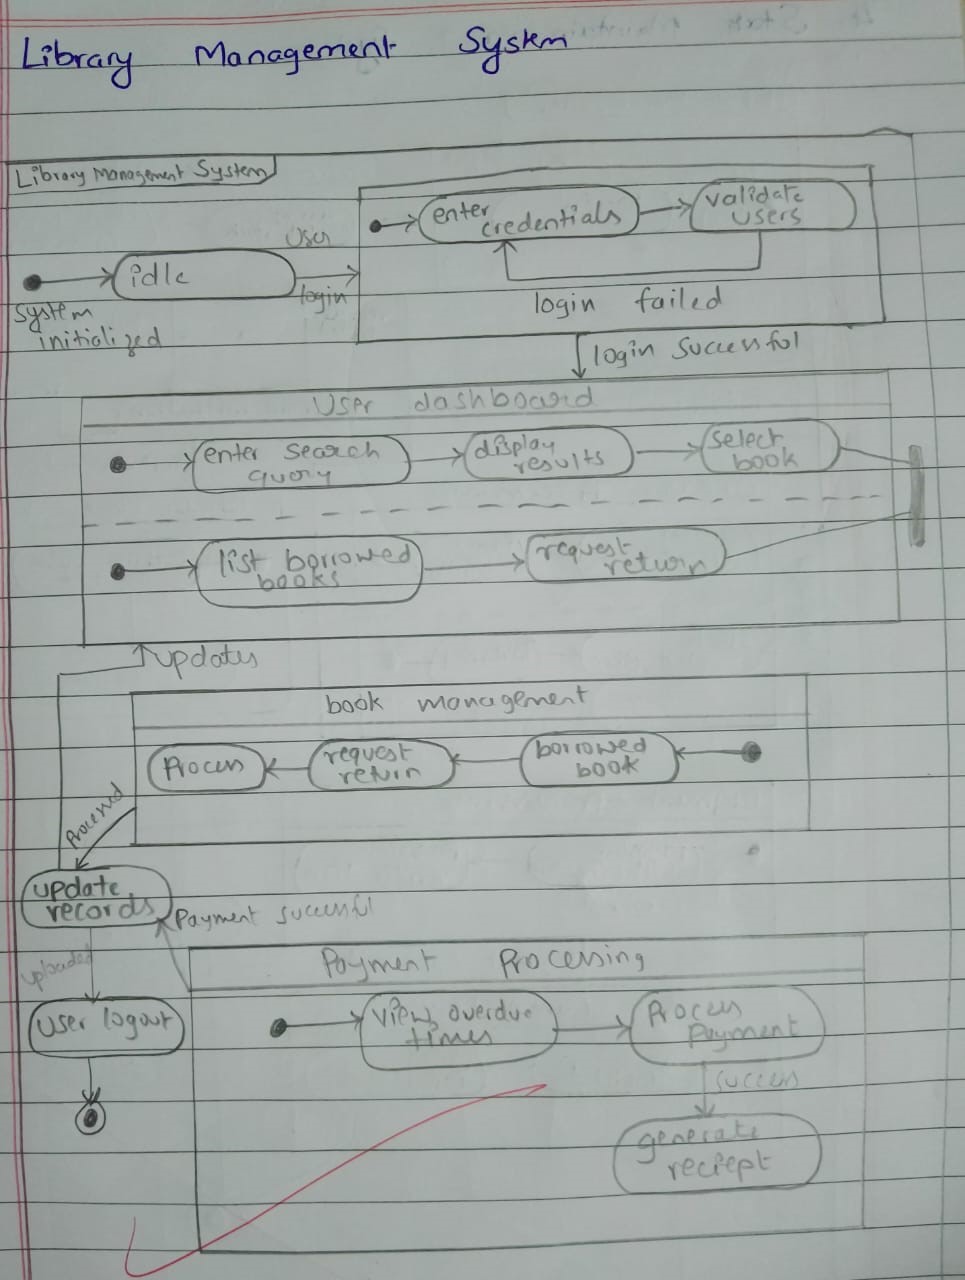 Library Management System
Library Management System
enter
credentials
validate
users
User
idle
login
System
initialized
login failed
login successful
User dashboard
enter search
query
display
results
select
book
list borrowed
books
request
return
updates
book management
Process
request
return
borrowed
book
Proceed
update
records
Payment successful
uploaded
Payment Processing
user logout
view overdue
times
Process
Payment
success
generate
reciept